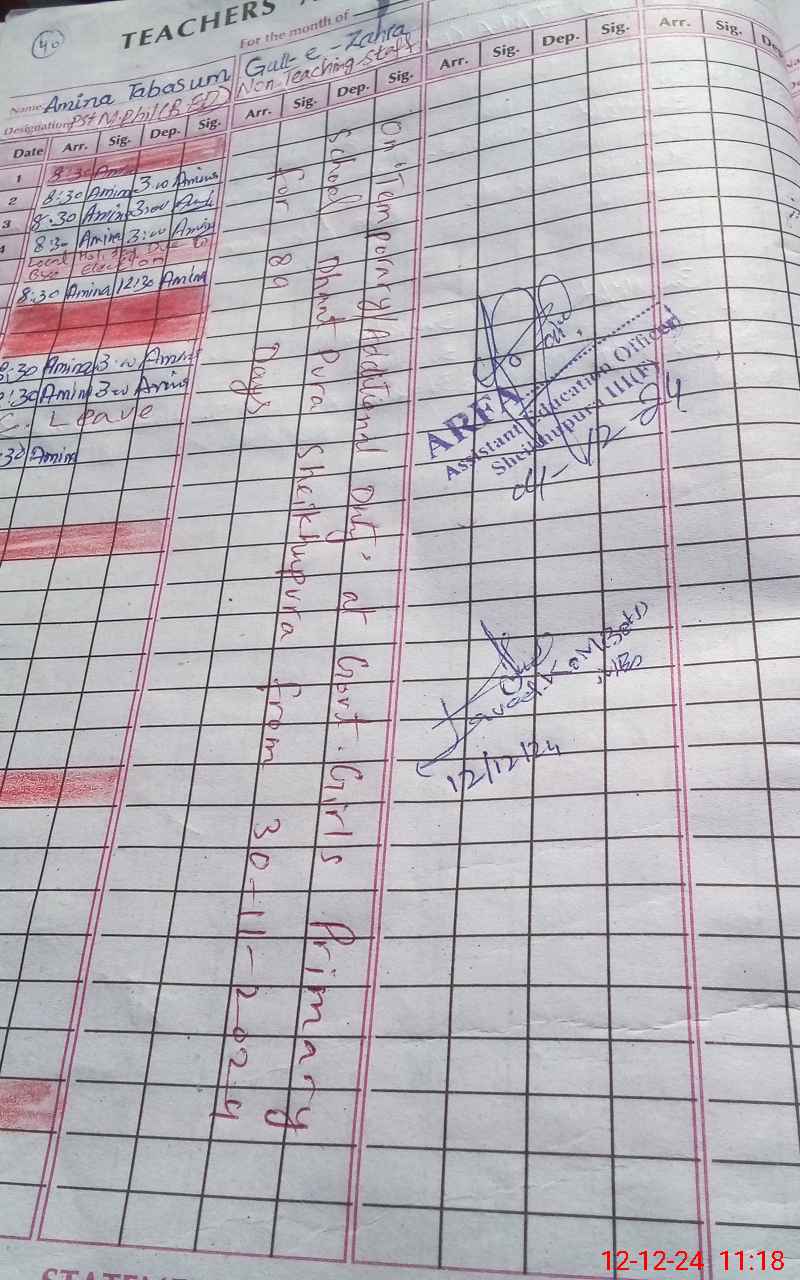 40
TEACHERS
For the month of
Name Amina Tabasum
Gull-e-Zahra
Designation PST M.Phil (B.ED)
Non. Teaching Staff
Date Arr. Sig. Dep. Sig. Arr. Sig. Dep. Sig. Arr. Sig. Dep. Sig. Arr. Sig. De
1
8:30 Amina
2 8:30 Amina 3:00 Amina
3 8:30 Amina 3:00
4 8:30 Amina 3:00 Amina
Local
Bye election
8:30 Amina 12:30 Amina
:30 Amina 3:00 Amina
:30 Amina 3:00 Amina
C. Leave
:30 Amina
On Temporary/Additional Duty, at Govt. Girls Primary
School Dhant Pura Sheikhupura from 30-11-2024
for 89 Days
ARFA
Assistant Education Officer
Sheikhupura III(F)
04-12-24
12/12/24
STATEME
12-12-24 11:18